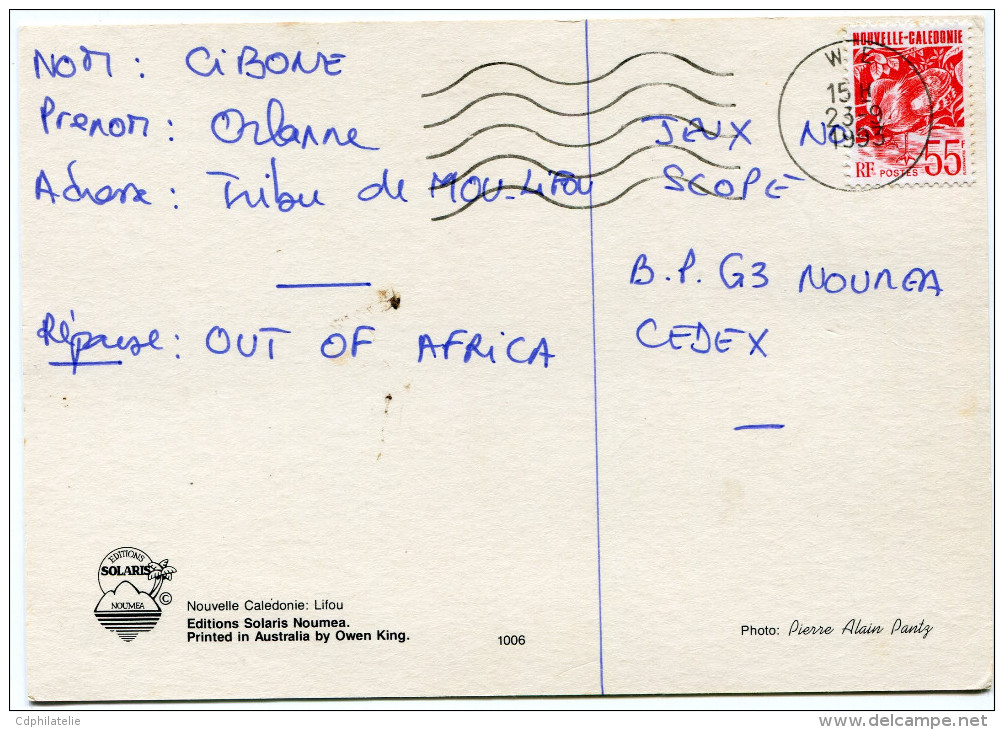 NOM : CIBONE
Prenom : Orlanne
Adresse : Tribu de MOU-LiFOU
Réponse : OUT OF AFRICA
JEUX NO
SCOPE
B.P. G3 NOUMEA
CEDEX
NOUVELLE-CALEDONIE
RF POSTES 55F
W E
15 H
23-9
1993
EDITIONS
SOLARIS
NOUMEA
©
Nouvelle Calédonie: Lifou
Editions Solaris Noumea.
Printed in Australia by Owen King.
1006
Photo: Pierre Alain Pantz
Cdphilatelie
www.delcampe.net